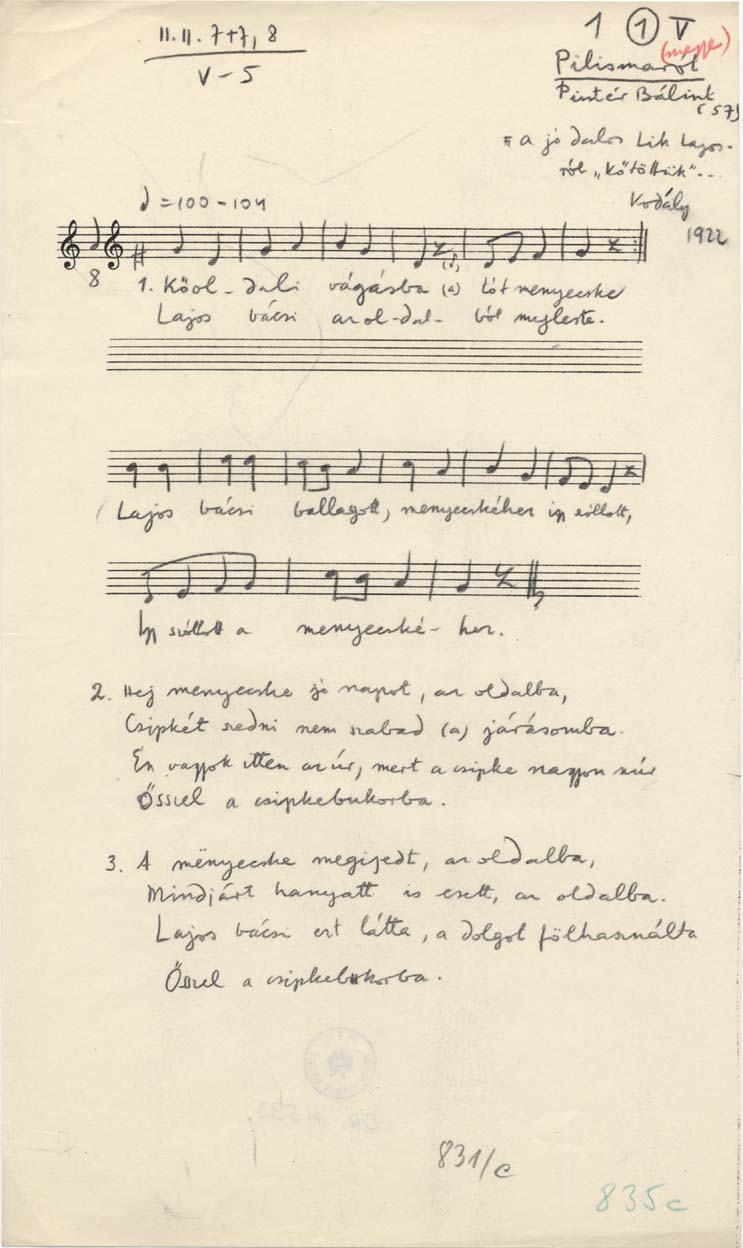 11.11. 7+7, 8
V-5
1 1 V
(megye)
Pilismarót
Pintér Bálint
(57)
= a jó dalos Lik Lajos-
ról „Kötöttük"...
Kodály
1922
=100-104
8
1. Kőol-dali vágásba (a) tót menyecske
Lajos bácsi az ol-dal-ból megleste.
Lajos bácsi ballagott, menyecskéhez így szóllott,
Így szóllott a menyecské-hez.
2. Hej menyecske jó napot, az oldalba,
Csipkét szedni nem szabad (a) járásomba.
Én vagyok itten az úr, mert a csipke nagyon szúr
Ősszel a csipkebukorba.
3. A mënyecske megijedt, az oldalba,
Mindjárt hanyatt is esett, az oldalba.
Lajos bácsi ezt látta, a dolgot fölhasználta
Ősszel a csipkebokorba.
831/c
835c